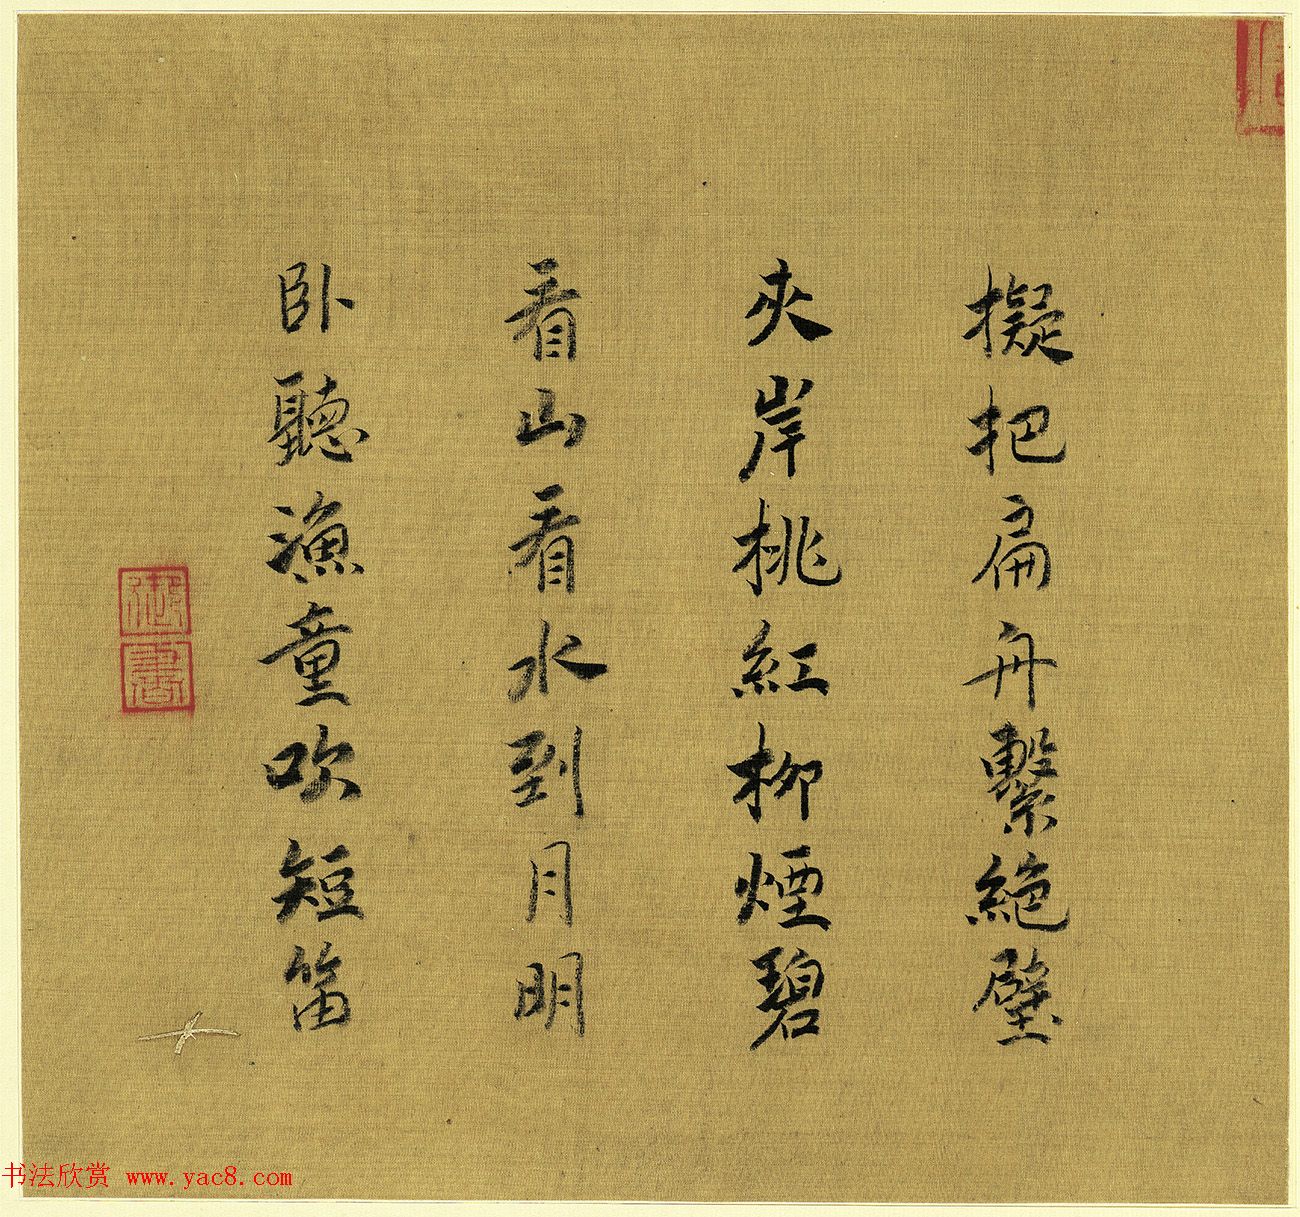 擬把扁舟繫絶壁
夾岸桃紅柳煙碧
看山看水到月明
卧聽漁童吹短笛
御書
书法欣赏 www.yac8.com